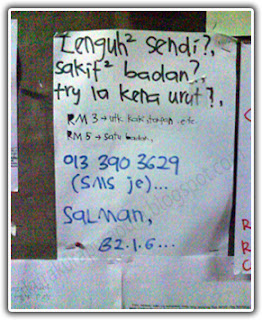 Lenguh² sendi?,
sakit² badan?,
try la kena urut?,
RM 3 → utk. kaki tangan etc.
RM 5 → satu badan.
013 390 3629
(SMS je)...
SALMAN,
B2.1.6...
R
R